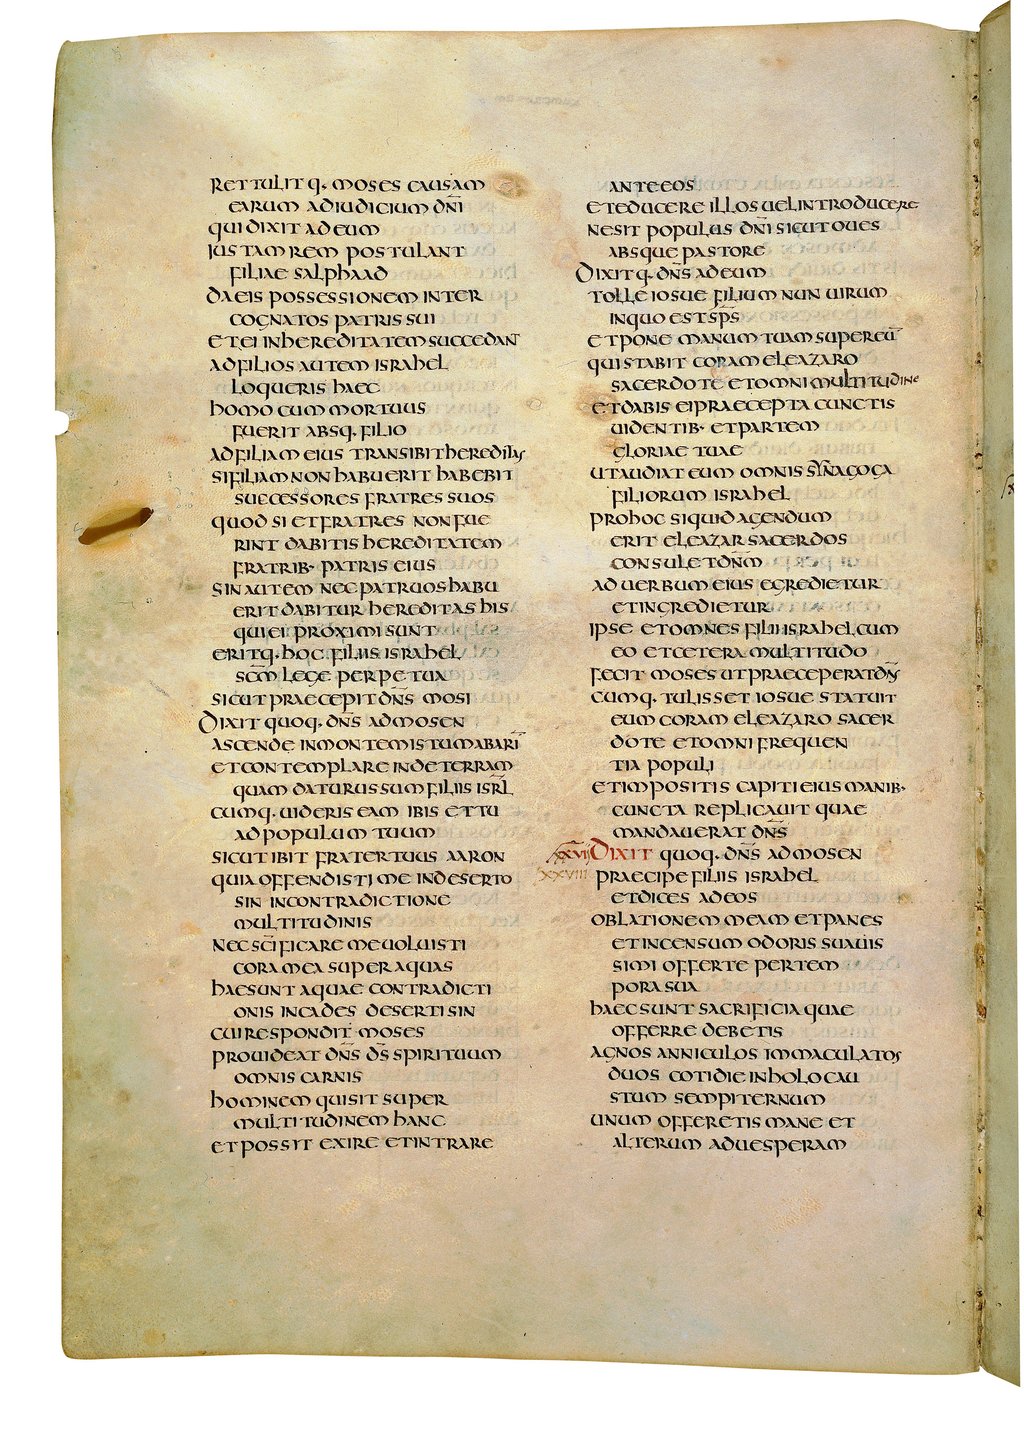 RETTULITQ· MOSES CAUSAM
EARUM ADIUDICIUM DN̄I
QUI DIXIT AD EUM
IUSTAM REM POSTULANT
FILIAE SALPHAAD
DA EIS POSSESSIONEM INTER
COGNATOS PATRIS SUI
ET EI IN HEREDITATEM SUCCEDANT
AD FILIOS AUTEM ISRAHEL
LOQUERIS HAEC
HOMO CUM MORTUUS
FUERIT ABSQ· FILIO
AD FILIAM EIUS TRANSIBIT HEREDITAS
SI FILIAM NON HABUERIT HABEBIT
SUCCESSORES FRATRES SUOS
QUOD SI ET FRATRES NON FUE
RINT DABITIS HEREDITATEM
FRATRIB· PATRIS EIUS
SIN AUTEM NEC PATRUOS HABU
ERIT DABITUR HEREDITAS HIS
QUI EI PROXIMI SUNT
ERITQ· HOC FILIIS ISRAHEL
SC̄M LEGE PERPETUA
SICUT PRAECEPIT DN̄S MOSI
DIXIT QUOQ· DN̄S AD MOSEN
ASCENDE IN MONTEM ISTUM ABARĪ
ET CONTEMPLARE INDE TERRAM
QUAM DATURUS SUM FILIIS ISR̄L
CUMQ· UIDERIS EAM IBIS ET TU
AD POPULUM TUUM
SICUT IBIT FRATER TUUS AARON
QUIA OFFENDISTI ME IN DESERTO
SIN IN CONTRADICTIONE
MULTITUDINIS
NEC SC̄IFICARE ME UOLUISTI
CORAM EA SUPER AQUAS
HAE SUNT AQUAE CONTRADICTI
ONIS IN CADES DESERTI SIN
CUI RESPONDIT MOSES
PROUIDEAT DN̄S D̄S SPIRITUUM
OMNIS CARNIS
HOMINEM QUI SIT SUPER
MULTITUDINEM HANC
ET POSSIT EXIRE ET INTRARE
ANTE EOS
ET EDUCERE ILLOS UEL INTRODUCERE
NE SIT POPULUS DN̄I SICUT OUES
ABSQUE PASTORE
DIXITQ· DN̄S AD EUM
TOLLE IOSUE FILIUM NUN UIRUM
IN QUO EST SP̄S
ET PONE MANUM TUAM SUPER EŪ
QUI STABIT CORAM ELEAZARO
SACERDOTE ET OMNI MULTITUDINE
ET DABIS EI PRAECEPTA CUNCTIS
UIDENTIB· ET PARTEM
GLORIAE TUAE
UT AUDIAT EUM OMNIS SYNAGOGA
FILIORUM ISRAHEL
PRO HOC SI QUID AGENDUM
ERIT ELEAZAR SACERDOS
CONSULET DN̄M
AD UERBUM EIUS EGREDIETUR
ET INGREDIETUR
IPSE ET OMNES FILII ISRAHEL CUM
EO ET CETERA MULTITUDO
FECIT MOSES UT PRAECEPERAT DN̄S
CUMQ· TULISSET IOSUE STATUIT
EUM CORAM ELEAZARO SACER
DOTE ET OMNI FREQUEN
TIA POPULI
ET IMPOSITIS CAPITI EIUS MANIB·
CUNCTA REPLICAUIT QUAE
MANDAUERAT DN̄S
XXVII DIXIT QUOQ· DN̄S AD MOSEN
XXVIII PRAECIPE FILIIS ISRAHEL
ET DICES AD EOS
OBLATIONEM MEAM ET PANES
ET INCENSUM ODORIS SUAUIS
SIMI OFFERTE PER TEM
PORA SUA
HAEC SUNT SACRIFICIA QUAE
OFFERRE DEBETIS
AGNOS ANNICULOS IMMACULATOS
DUOS COTIDIE IN HOLOCAU
STUM SEMPITERNUM
UNUM OFFERETIS MANE ET
ALTERUM AD UESPERAM